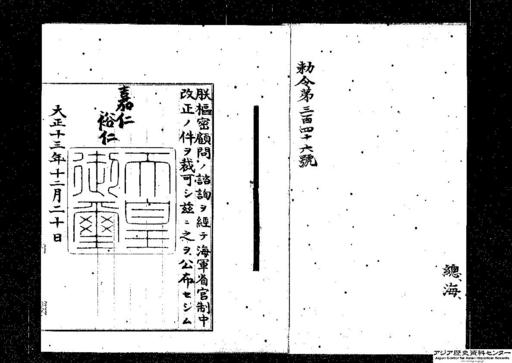 勅令第三百四十六號
總海
朕樞密顧問ノ諮詢ヲ經テ海軍省官制中
改正ノ件ヲ裁可シ茲ニ之ヲ公布セシム
嘉仁
裕仁
天皇
御璽
大正十三年十二月二十日
アジア歴史資料センター
Japan Center for Asian Historical Records